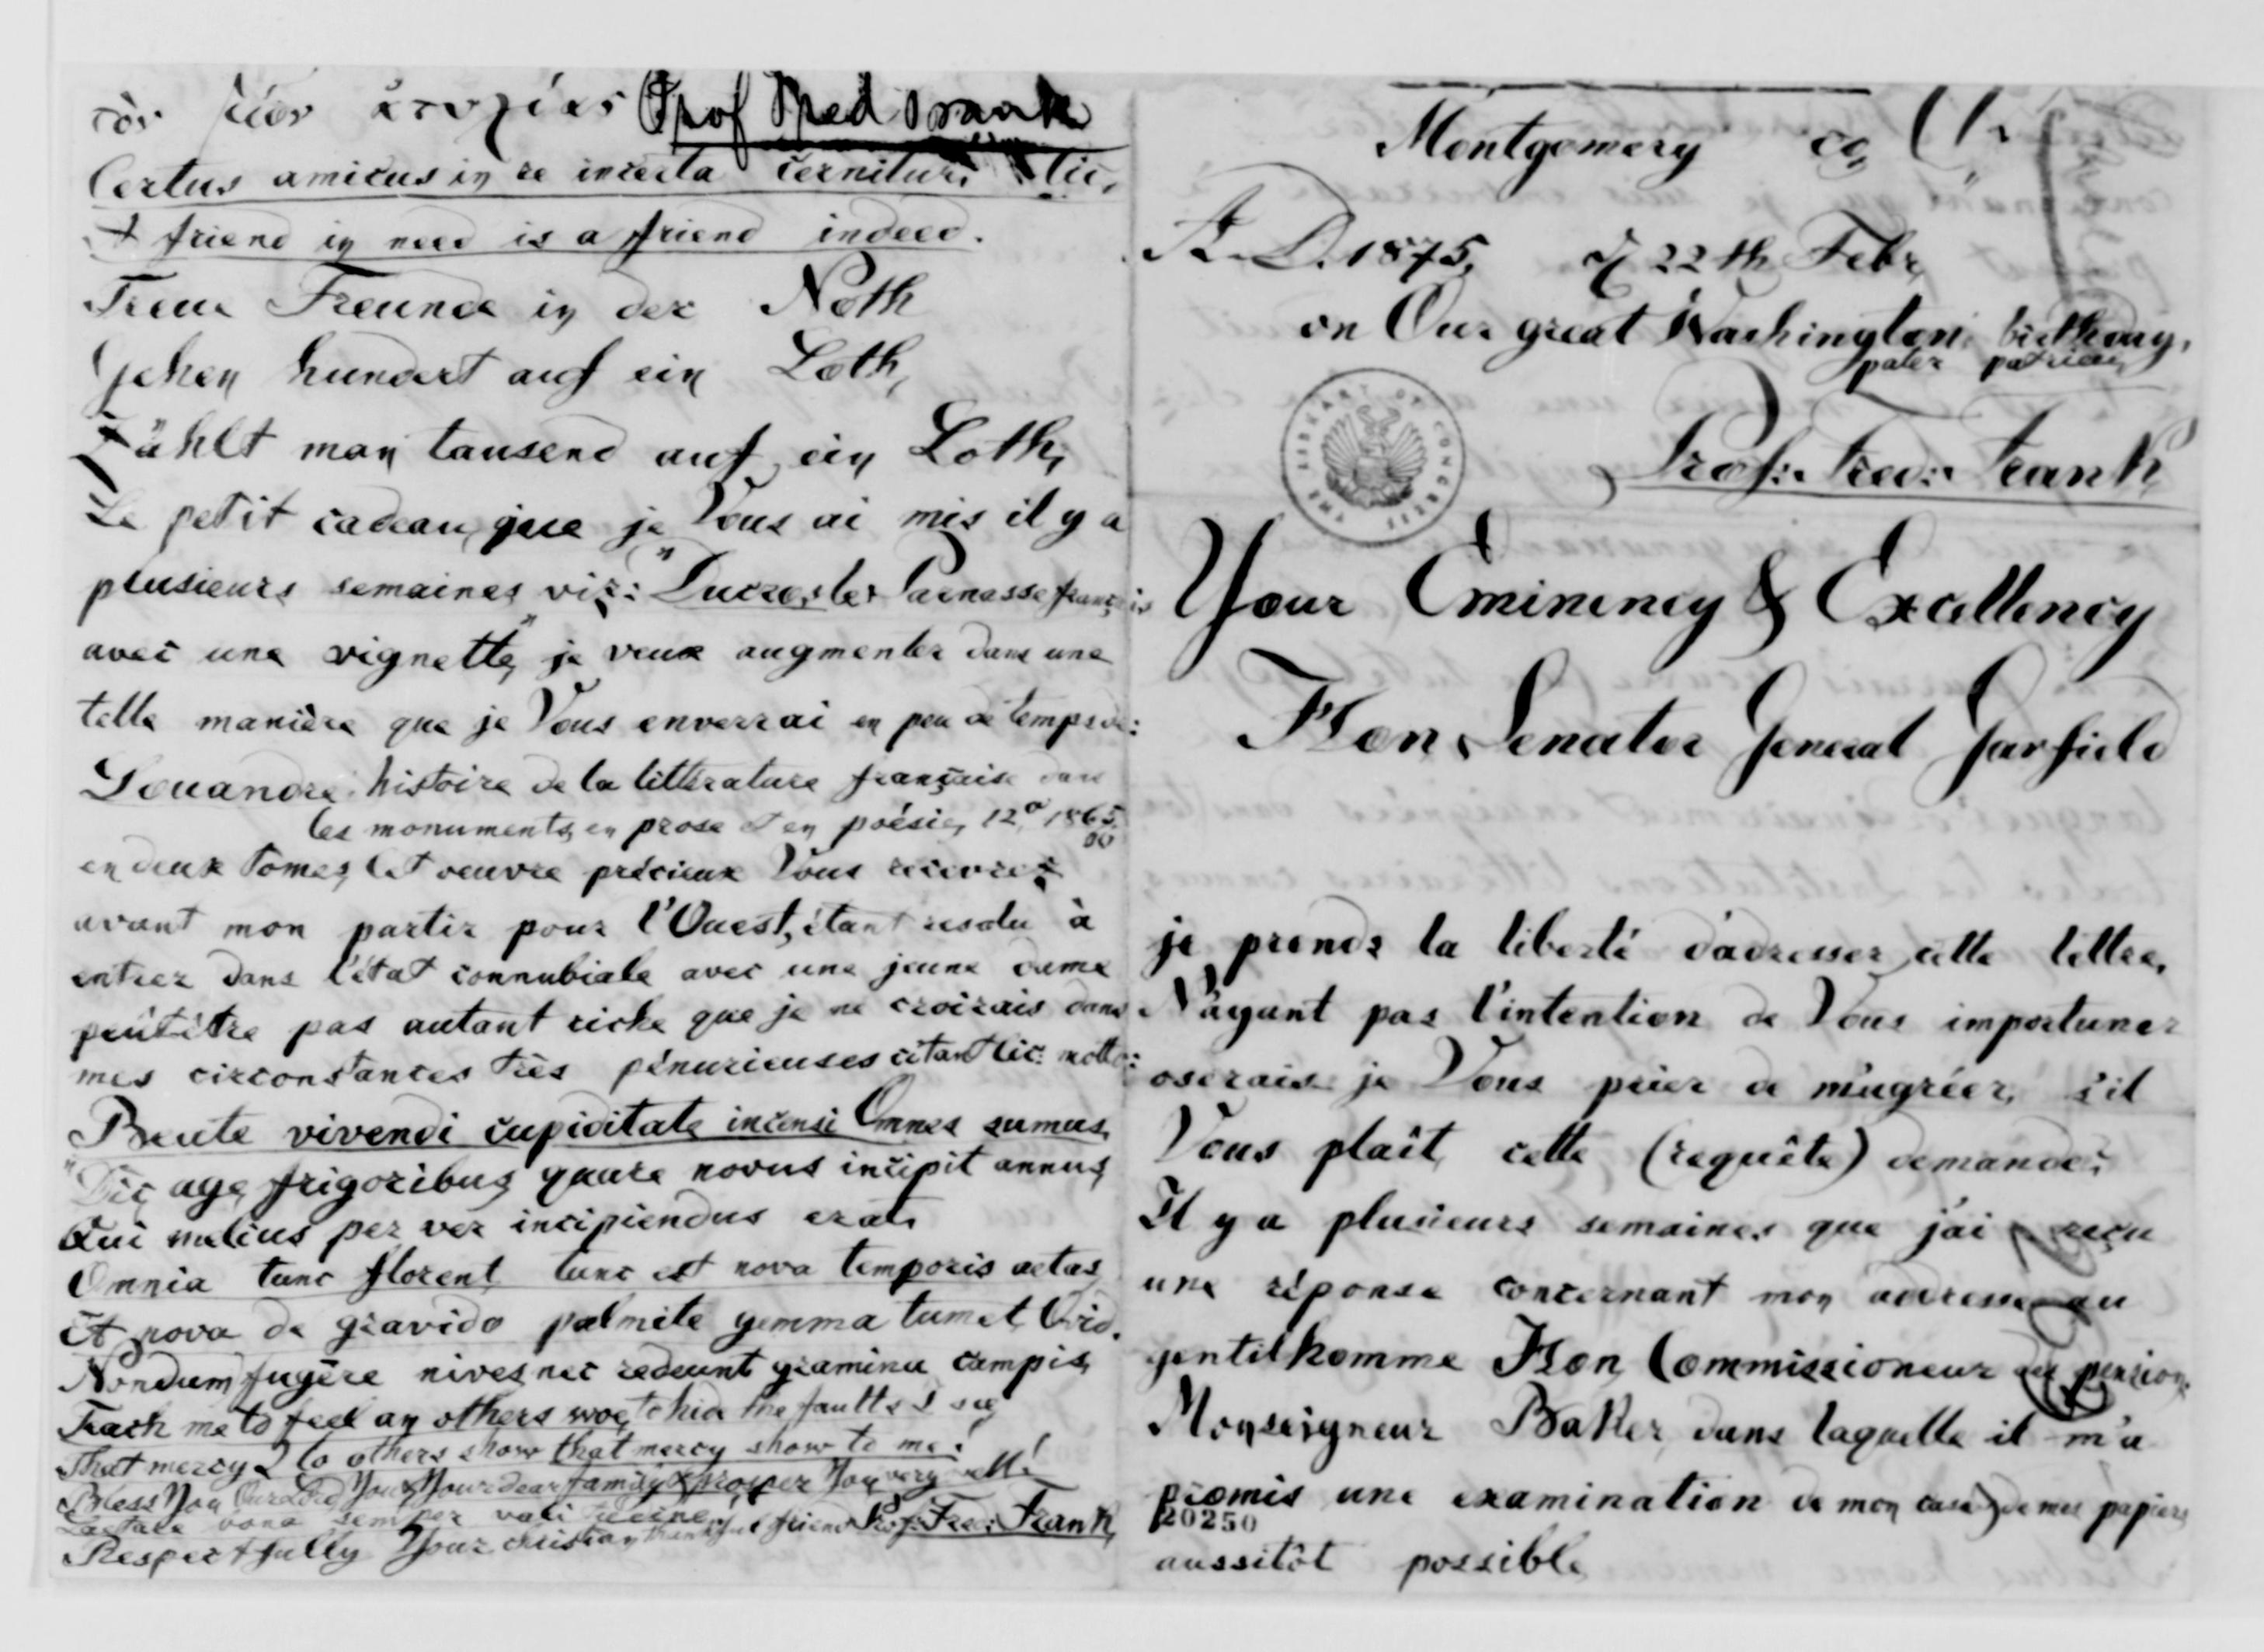 Prof Fred Frank
Certus amicus in re incerta cernitur. Cic.
A friend in need is a friend indeed.
Treue Freunde in der Noth
Gehen hundert auf ein Loth,
Zählt man tausend auf ein Loth,
Le petit cadeau, que je Vous ai mis il y a
plusieurs semaines viz: "Ducros les Parnasse français
avec une vignette," je veux augmenter dans une
telle manière que je Vous enverrai en peu de temps de:
Louandre histoire de la littérature française dans
les monuments en prose et en poésie, 12o 1865
en deux tomes, Cet oeuvre précieux Vous recevrez
avant mon partir pour l'Ouest, étant resolu à
entrer dans l'état connubiale avec une jeune dame
peutêtre pas autant riche que je ne croirais dans
mes circonstances très pénurieuses citant Cic: motto:
Beate vivendi cupiditate incensi Omnes sumus,
"Dic age, frigoribus quare novus incipit annus,
Qui melius per ver incipiendus erat,
Omnia tunc florent, tunc est nova temporis aetas,
Et nova de gravido palmite gemma tumet, Ovid.
Nondum fugëre nives, nec redeunt gramina campis,
Teach me to feel an others woe, to hide the faults I see
That mercy I to others show that mercy show to me!
Bless You Our Lord You & Your dear family & prosper You very well!
semper
Respectfully Your christian thankful friend Prof: Fred: Frank,
Montgomery Co,
A. D. 1875, 22th Febr,
on Our great Washington birthday,
pater patriae,
Prof: Fred: Frank,
THE LIBRARY OF CONGRESS
Your Eminency & Excellency
Hon Senator General Garfield
je prends la liberté d'adresser cette lettre,
N'ayant pas l'intention de Vous importuner
oserais je Vous prier de m'agréer, s'il
Vous plait, cette (requête) demande:
Il y a plusieurs semaines que j'ai reçu
une réponse concernant mon addresse au
gentilhomme Hon, Commissioneur des pensions
Monseigneur Baker, dans laquelle il m'a
promis une examination de mon case & de mes papiers
20250
aussitôt possible